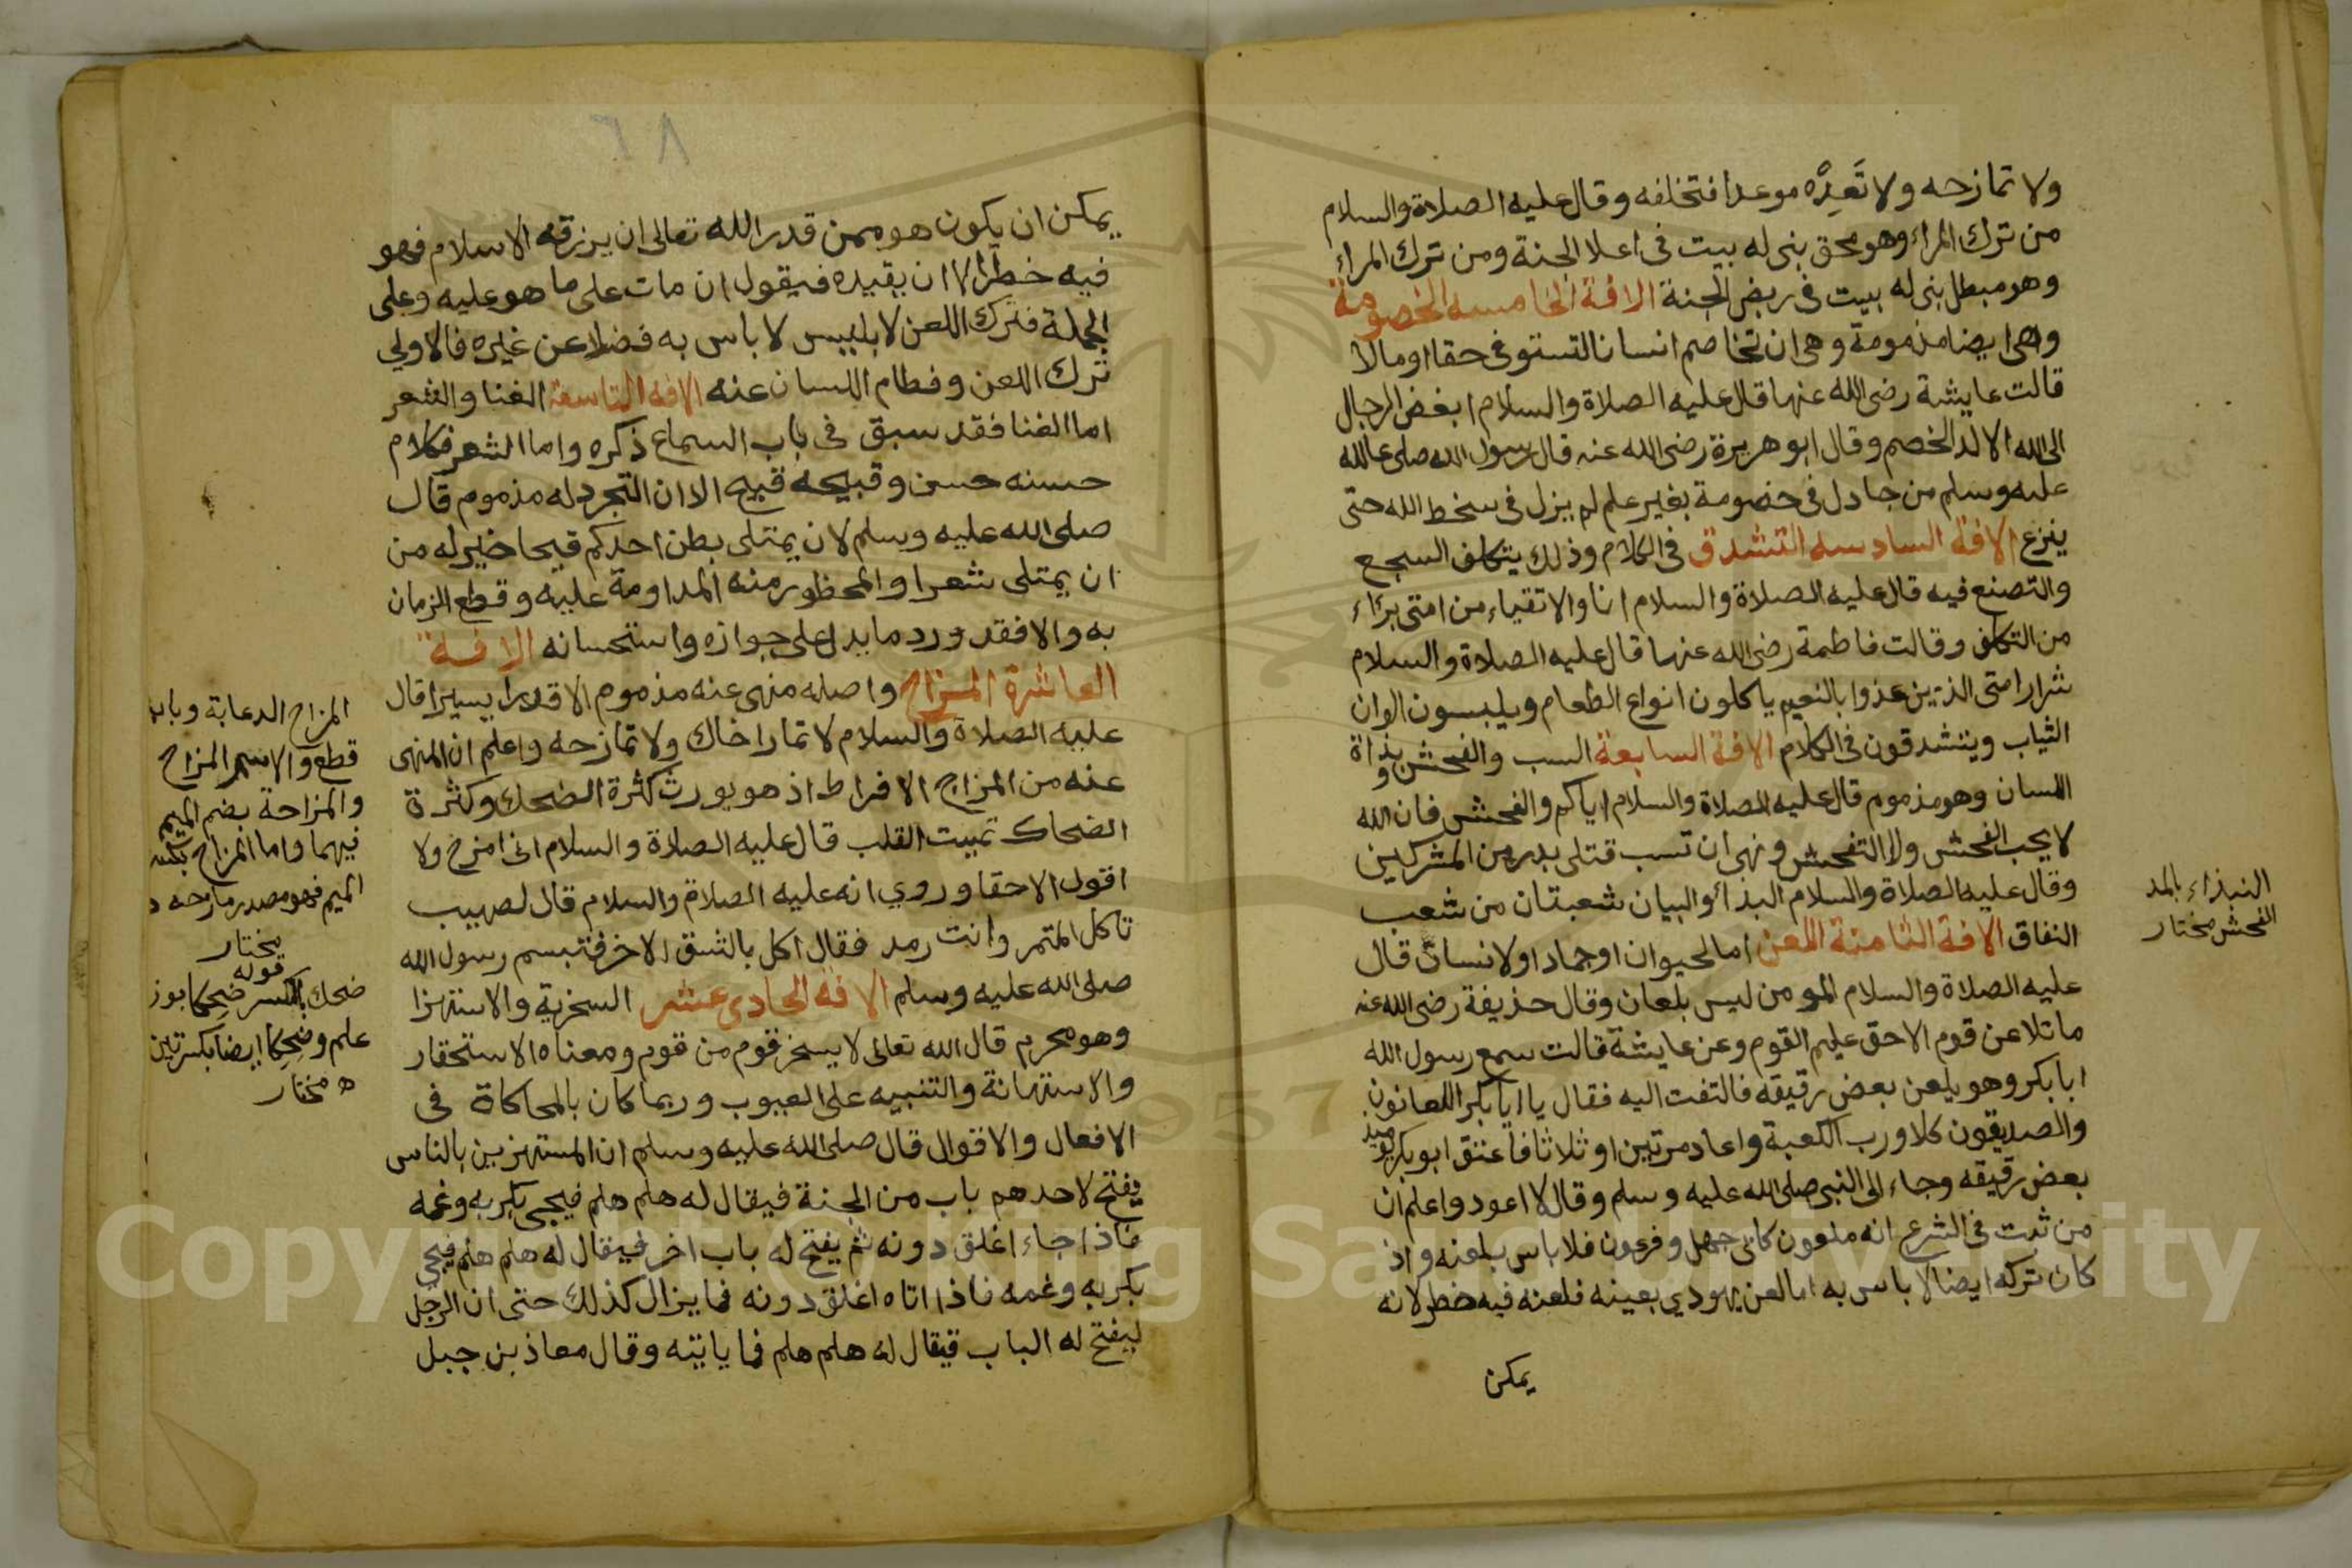 ولا تمازحه ولا تَعِدْه موعدا فتخلفه وقال عليه الصلاة والسلام
من ترك المراء وهو محق بنى له بيت فى اعلا الجنة ومن ترك المراء
وهو مبطل بنى له بيت فى ربض الجنة الافة الخامسه الخصومة
وهى ايضا مذمومة وهى ان تخاصم انسانا لتستوفى حقا او مالا
قالت عايشة رضى الله عنها قال عليه الصلاة والسلام ابغض الرجال
الى الله الالد الخصم وقال ابو هريرة رضى الله عنه قال رسول الله صلى الله
عليه وسلم من جادل فى خصومة بغير علم لم يزل فى سخط الله حتى
ينزع الافة السادسه التشدق فى الكلام وذلك يتكلف السجع
والتصنع فيه قال عليه الصلاة والسلام انا والاتقياء من امتى براء
من التكلف وقالت فاطمة رضى الله عنها قال عليه الصلاة والسلام
شرار امتى الذين غذوا بالنعيم ياكلون انواع الطعام ويلبسون الوان
الثياب ويتشدقون فى الكلام الافة السابعة السب والفحش وبذاة
اللسان وهو مذموم قال عليه الصلاة والسلام اياكم والفحش فان الله
لا يحب الفحش ولا التفحش ونهى ان تسب قتلى بدر من المشركين
وقال عليه الصلاة والسلام البذاء والبيان شعبتان من شعب
النفاق الافة الثامنة اللعن اما لحيوان او جماد او لانسان قال
عليه الصلاة والسلام المومن ليس بلعان وقال حذيفة رضى الله عنه
ما تلاعن قوم الا حق عليهم القوم وعن عايشة قالت سمع رسول الله
ابا بكر وهو يلعن بعض رقيقه فالتفت اليه فقال يا ابا بكر اللعانون
والصديقون كلا ورب الكعبة واعاد مرتين او ثلاثا فاعتق ابو بكر يوميذ
بعض رقيقه وجاء الى النبى صلى الله عليه وسلم وقال لا اعود واعلم ان
من ثبت فى الشرع انه ملعون كابى جهل وفرعون فلا باس بلعنه واذ
كان تركه ايضا لا باس به اما لعن يهودي بعينه فلعنه فيه خطر لانه
يمكن
البذاء بالمد
الفحش مختار
٦٨
يمكن ان يكون هو ممن قدر الله تعالى ان يرزقه الاسلام فهو
فيه خطر الا ان يقيده فيقول ان مات على ما هو عليه وعلى
الجملة فترك اللعن لابليس لا باس به فضلا عن غيره فالاولي
ترك اللعن وفطام اللسان عنه الافه التاسعة الغنا والشعر
اما الغنا فقد سبق فى باب السماع ذكره واما الشعر فكلام
حسنه حسن وقبيحه قبيح الا ان التجرد له مذموم قال
صلى الله عليه وسلم لان يمتلى بطن احدكم قيحا خير له من
ان يمتلى شعرا والمحظور منه المداومة عليه وقطع الزمان
به والا فقد ورد ما يدل على جوازه واستحسانه الافة
العاشرة المزاح واصله منهى عنه مذموم الا قدرا يسيرا قال
عليه الصلاة والسلام لا تمار اخاك ولا تمازحه واعلم ان المنهى
عنه من المزاح الافراط اذ هو يورث كثرة الضحك وكثرة
الضحاك تميت القلب قال عليه الصلاة والسلام انى امزح ولا
اقول الا حقا وروي انه عليه الصلاة والسلام قال لصهيب
تاكل التمر وانت رمد فقال اكل بالشق الاخر فتبسم رسول الله
صلى الله عليه وسلم الافه الحادى عشر السخرية والاستهزا
وهو محرم قال الله تعالى لا يسخر قوم من قوم ومعناه الاستحقار
والاستهانة والتنبيه على العيوب وربما كان بالمحاكاة فى
الافعال والاقوال قال صلى الله عليه وسلم ان المستهزين بالناس
يفتح لاحدهم باب من الجنة فيقال له هلم هلم فيجى بكربه وغمه
فاذا جاء اغلق دونه ثم يفتح له باب اخر فيقال له هلم هلم فيجى
بكربه وغمه فاذا اتاه اغلق دونه فما يزال كذلك حتى ان الرجل
ليفتح له الباب فيقال له هلم هلم فما ياتيه وقال معاذ بن جبل
المزاح الدعابة وبابه
قطع والاسم المزاح
والمزاحة بضم الميم
فيهما واما المزاح بكسر
الميم فهو مصدر مازحه
مختار
قوله
ضحك بالكسر ضحكا بوزن
علم وضحكا ايضا بكسرتين
ه مختار
Copyright © King Saud University
1957